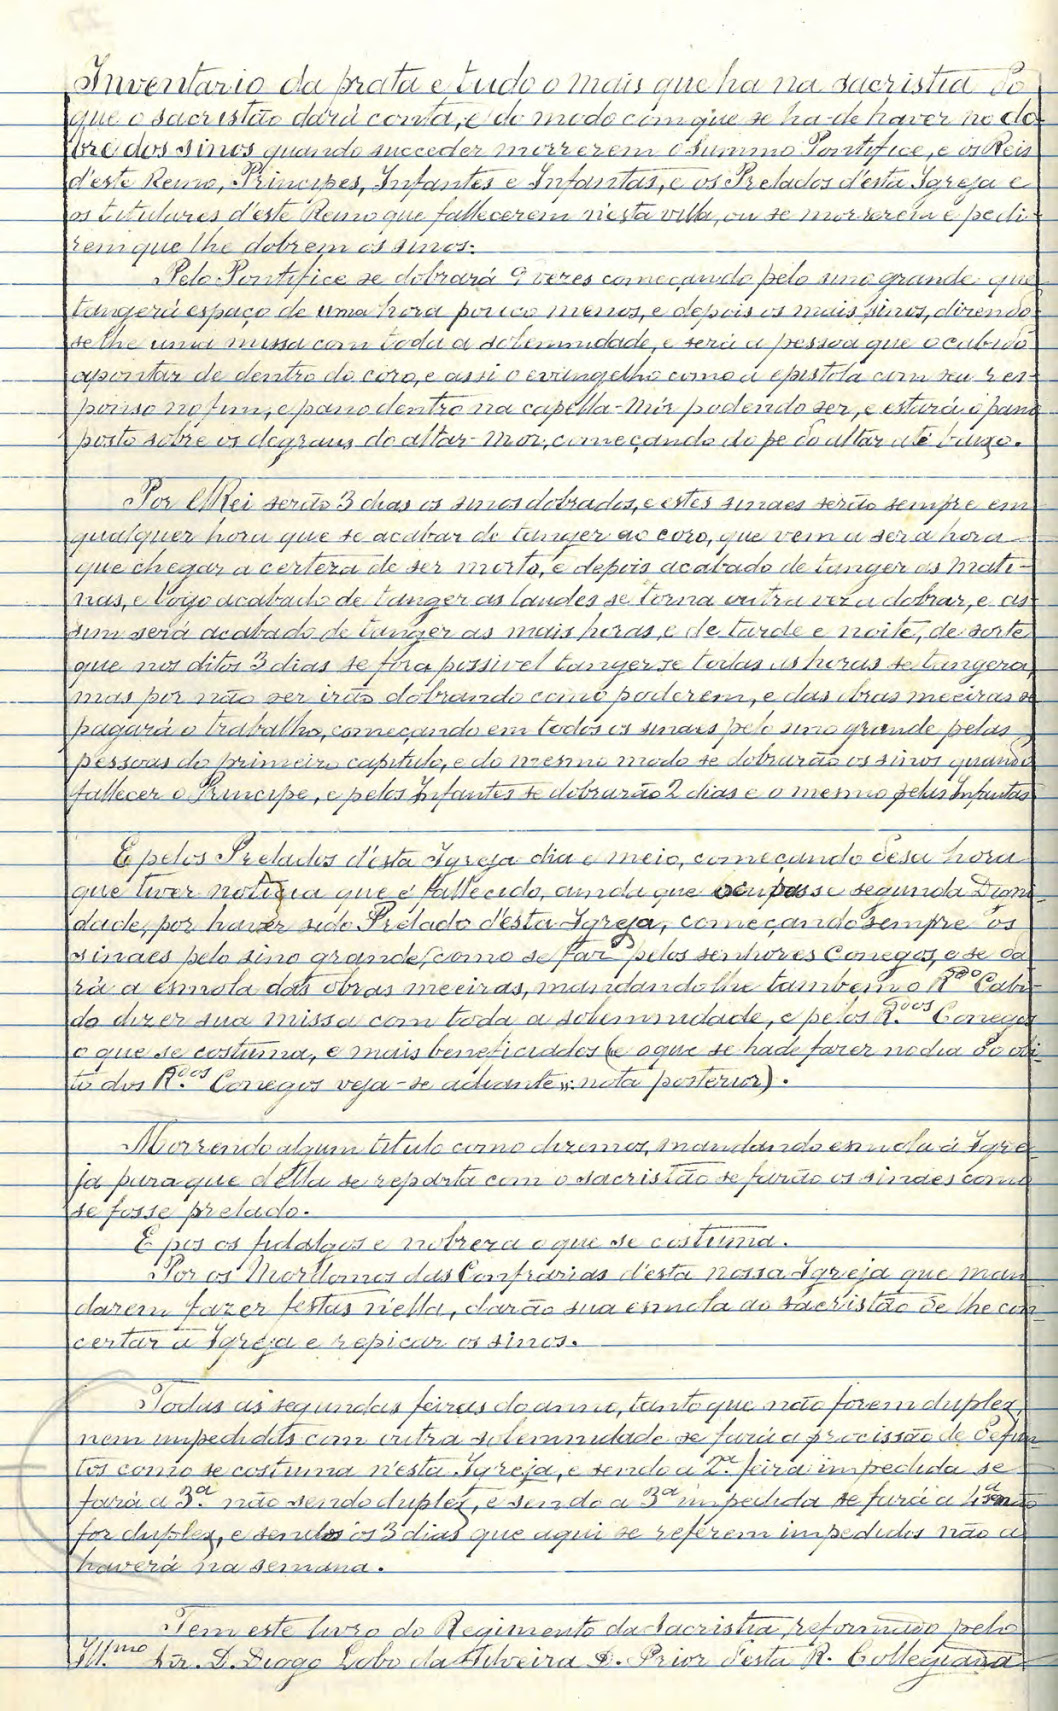 Inventario da prata e tudo o mais que ha na sacristia do
que o sacristão dará conta, e do modo com que se ha de haver no do-
bre dos sinos quando succeder morrerem o Summo Pontifice, e os Reis
d'este Reino, Principes, Infantes e Infantas, e os Prelados d'esta Igreja e
os titulares d'este Reino que fallecerem n'esta villa, ou se morrerem e pedi-
rem que lhe dobrem os sinos:
Pelo Pontifice se dobrará 9 vezes começando pelo sino grande que
tangerá espaço de uma hora pouco menos, e depois os mais sinos, dizendo-
se lhe uma missa com toda a solemnidade, e será a pessoa que o cabido
apontar de dentro do coro, e assi o evangelho como a epistola com seu res-
ponso no fim, e pano dentro na capella-mór podendo ser, e estará o pano
posto sobre os degraus do altar-mor, começando do pe do altar até baixo.
Por ElRei serão 3 dias os sinos dobrados, e estes sinaes serão sempre em
qualquer hora que se acabar de tanger ao coro, que vem a ser a hora
que chegar a certeza de ser morto, e depois acabado de tanger as mati-
nas, e logo acabado de tanger as laudes se torna outra vez a dobrar, e as-
sim será acabado de tanger as mais horas, e de tarde e noite, de sorte
que nos ditos 3 dias se fora possivel tanger-se todas as horas se tangera,
mas por não ser irão dobrando como poderem, e das obras meeiras se
pagará o trabalho, começando em todos os sinaes pelo sino grande pelas
pessoas do primeiro capitulo, e do mesmo modo se dobrarão os sinos quando
fallecer o Principe, e pelos Infantes se dobrarão 2 dias e o mesmo pelas Infantas
E pelos Prelados d'esta Igreja dia e meio, começando desa hora
que tiver noticia que é fallecido, ainda que occupasse segunda Digni-
dade, por haver sido Prelado d'esta Igreja, começando sempre os
sinaes pelo sino grande, como se faz pelos senhores Conegos, e se da-
rá a esmola das obras meeiras, mandando lhe tambem o R.do Cabi-
do dizer sua missa com toda a solemnidade, e pelos R.dos Conegos
o que se costuma, e mais beneficiados (e o que se hade fazer no dia do obi-
to dos R.dos Conegos veja-se adiante "nota posterior).
Morrendo algum titulo como dizemos, mandando esmola á Igre-
ja para que d'ella se reparta com o sacristão se farão os sinaes como
se fosse prelado.
E pos os fidalgos e nobreza o que se costuma.
Por os Mordomos das Confrarias d'esta nossa Igreja que man-
darem fazer festas n'ella, darão sua esmola ao sacristão de lhe con-
certar a Igreja e repicar os sinos.
Todas as segundas feiras do anno, tanto que não forem duplex,
nem impedidas com outra solemnidade se fará a procissão de defun-
tos como se costuma n'esta Igreja, e sendo a 2.ª feira impedida se
fará a 3.ª não sendo duplex, e sendo a 3ª impedida se fará a 4ª se não
for duplex, e sendo os 3 dias que aqui se referem impedidos não a
haverá na semana.
Tem este livro do Regimento da Sacristia, reformado pelo
Ill.mo Snr. D. Diogo Lobo da Silveira D. Prior d'esta R. Collegiada